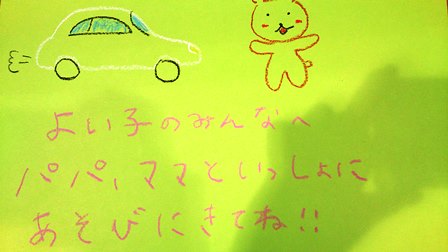 よい子のみんなへ
パパ,ママといっしょに
あそびにきてね!!